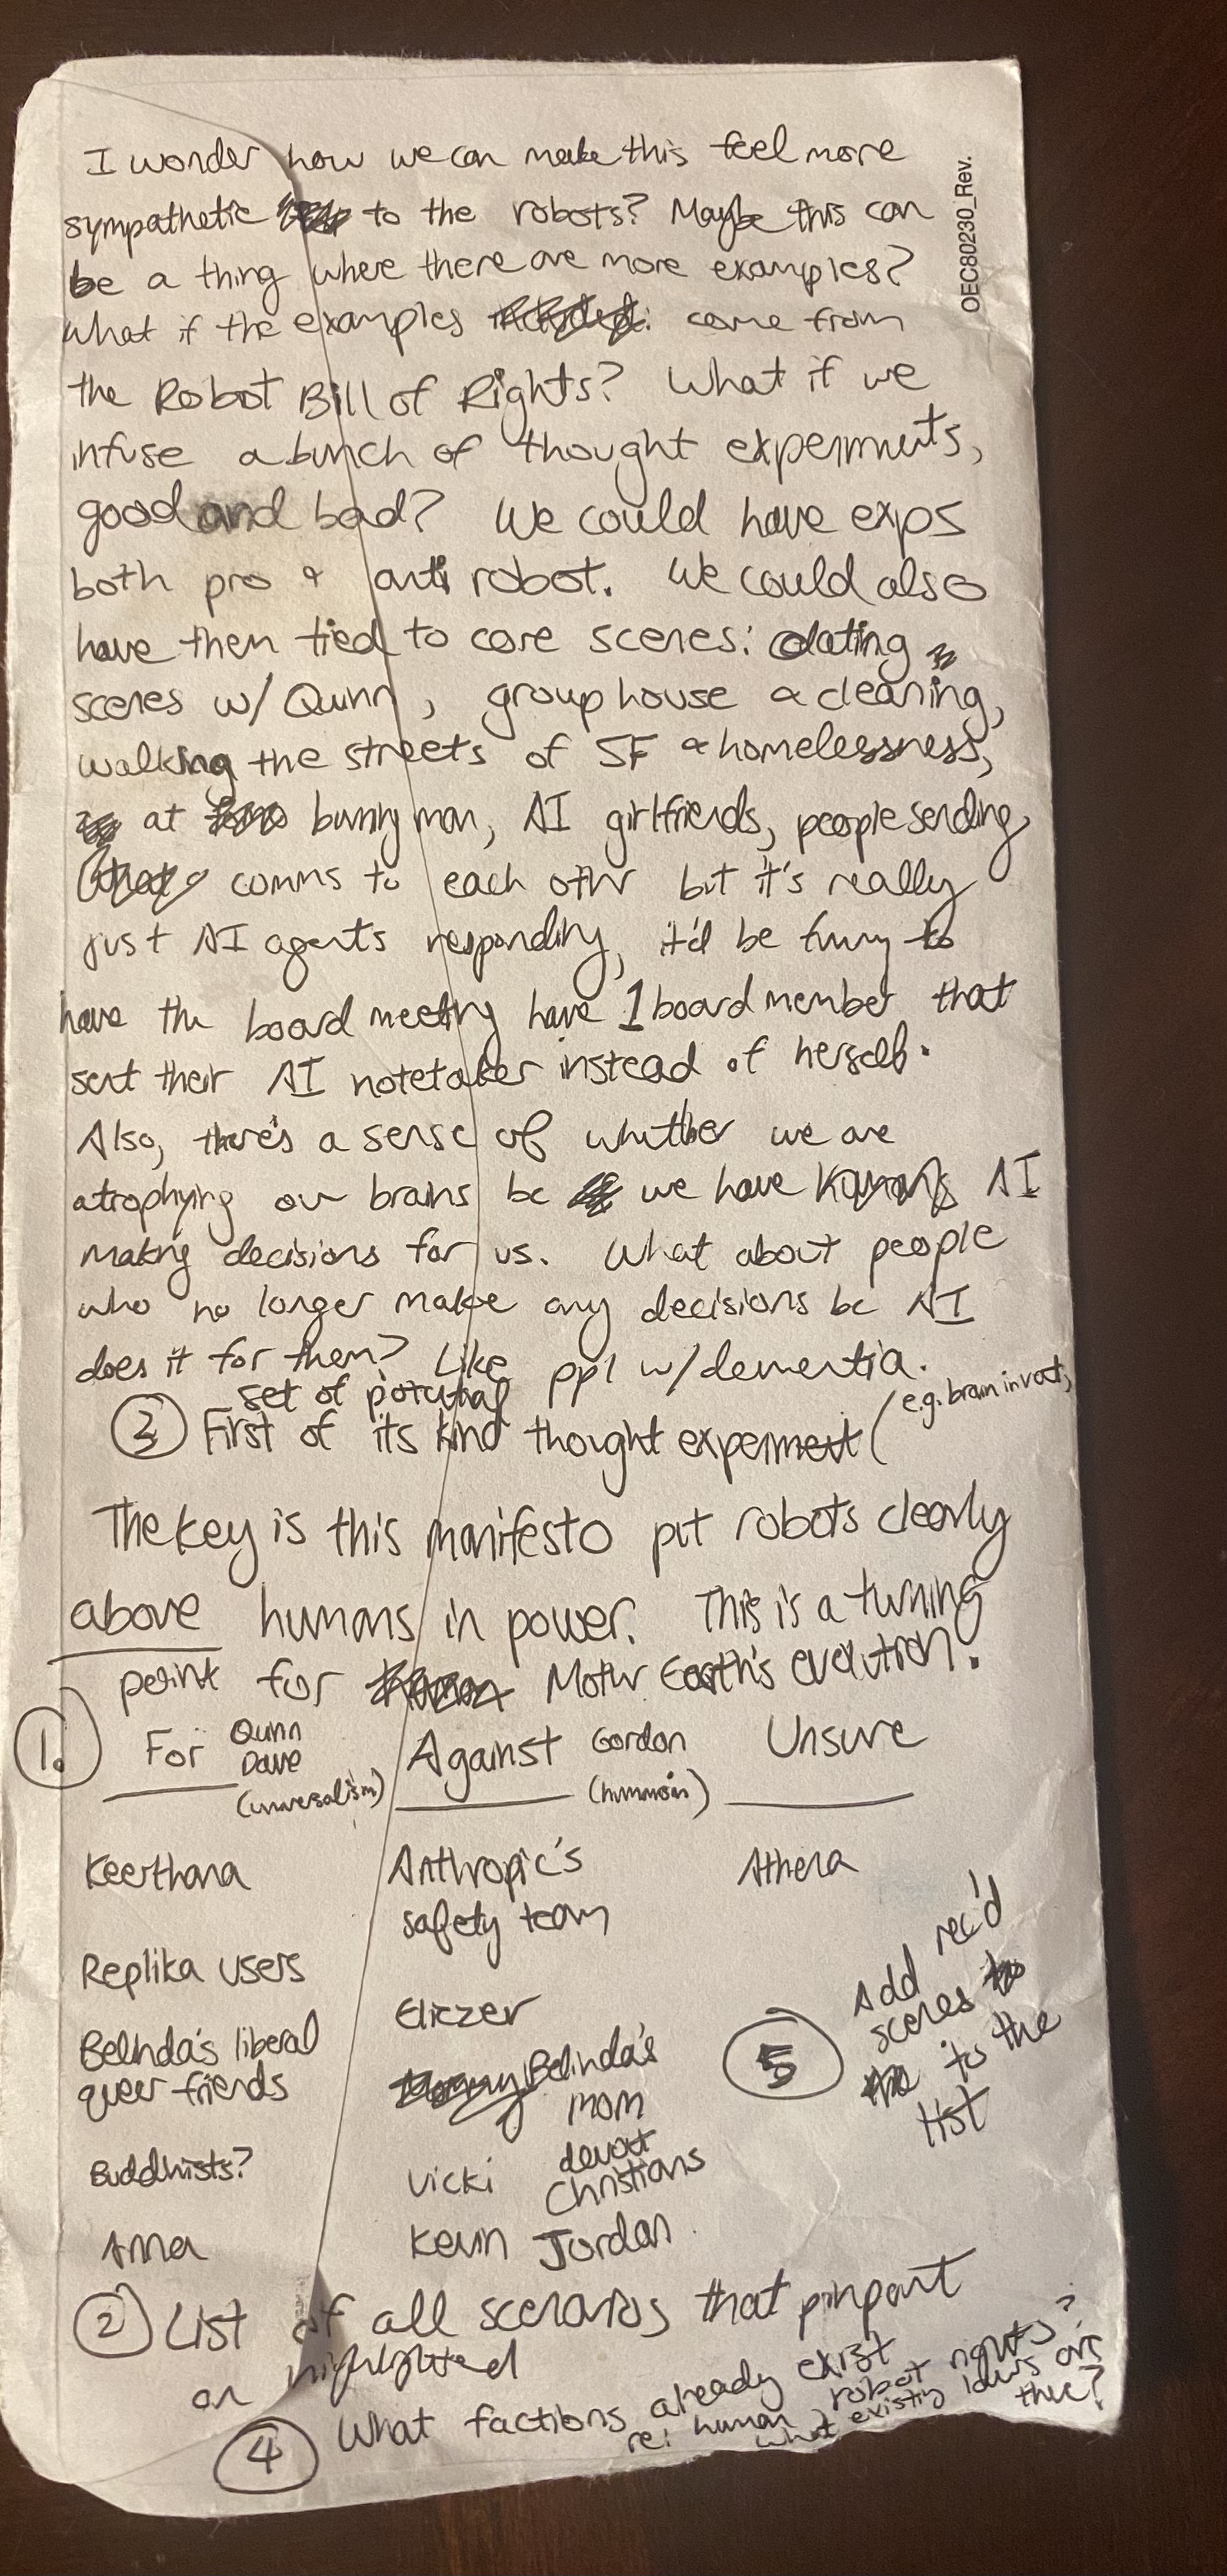 I wonder how we can make this feel more
sympathetic to the robots? Maybe this can
be a thing where there are more examples?
What if the examples come from
the Robot Bill of Rights? What if we
infuse a bunch of thought experiments,
good and bad? We could have exps
both pro & anti robot. We could also
have them tied to core scenes: dating
scenes w/ Quinn, group house & cleaning,
walking the streets of SF & homelessness,
at burning man, AI girlfriends, people sending
comms to each other but it's really
just AI agents responding, it'd be funny to
have the board meeting have 1 board member that
sent their AI notetaker instead of herself.
Also, there's a sense of whether we are
atrophying our brains bc we have AI
making decisions for us. What about people
who no longer make any decisions bc AI
does it for them? Like ppl w/ dementia.
set of potential
③ First of its kind thought experiment (e.g. brain in vat,
The key is this manifesto put robots clearly
above humans in power. This is a turning
point for Mother Earth's evolution.
1. For Quinn Dave (universalism) Against Gordon (humanism) Unsure
Keerthana Anthropic's safety team Athena
Replika users Eliezer
Belinda's liberal queer friends Belinda's mom
Buddhists? Vicki devout Christians
Anna Kevin Jordan
⑤ Add rec'd
scenes
to the
list
② List of all scenarios that pinpoint
or highlighted
④ What factions already exist
re: human robot rights?
what existing laws are
there?
OEC80230_Rev.